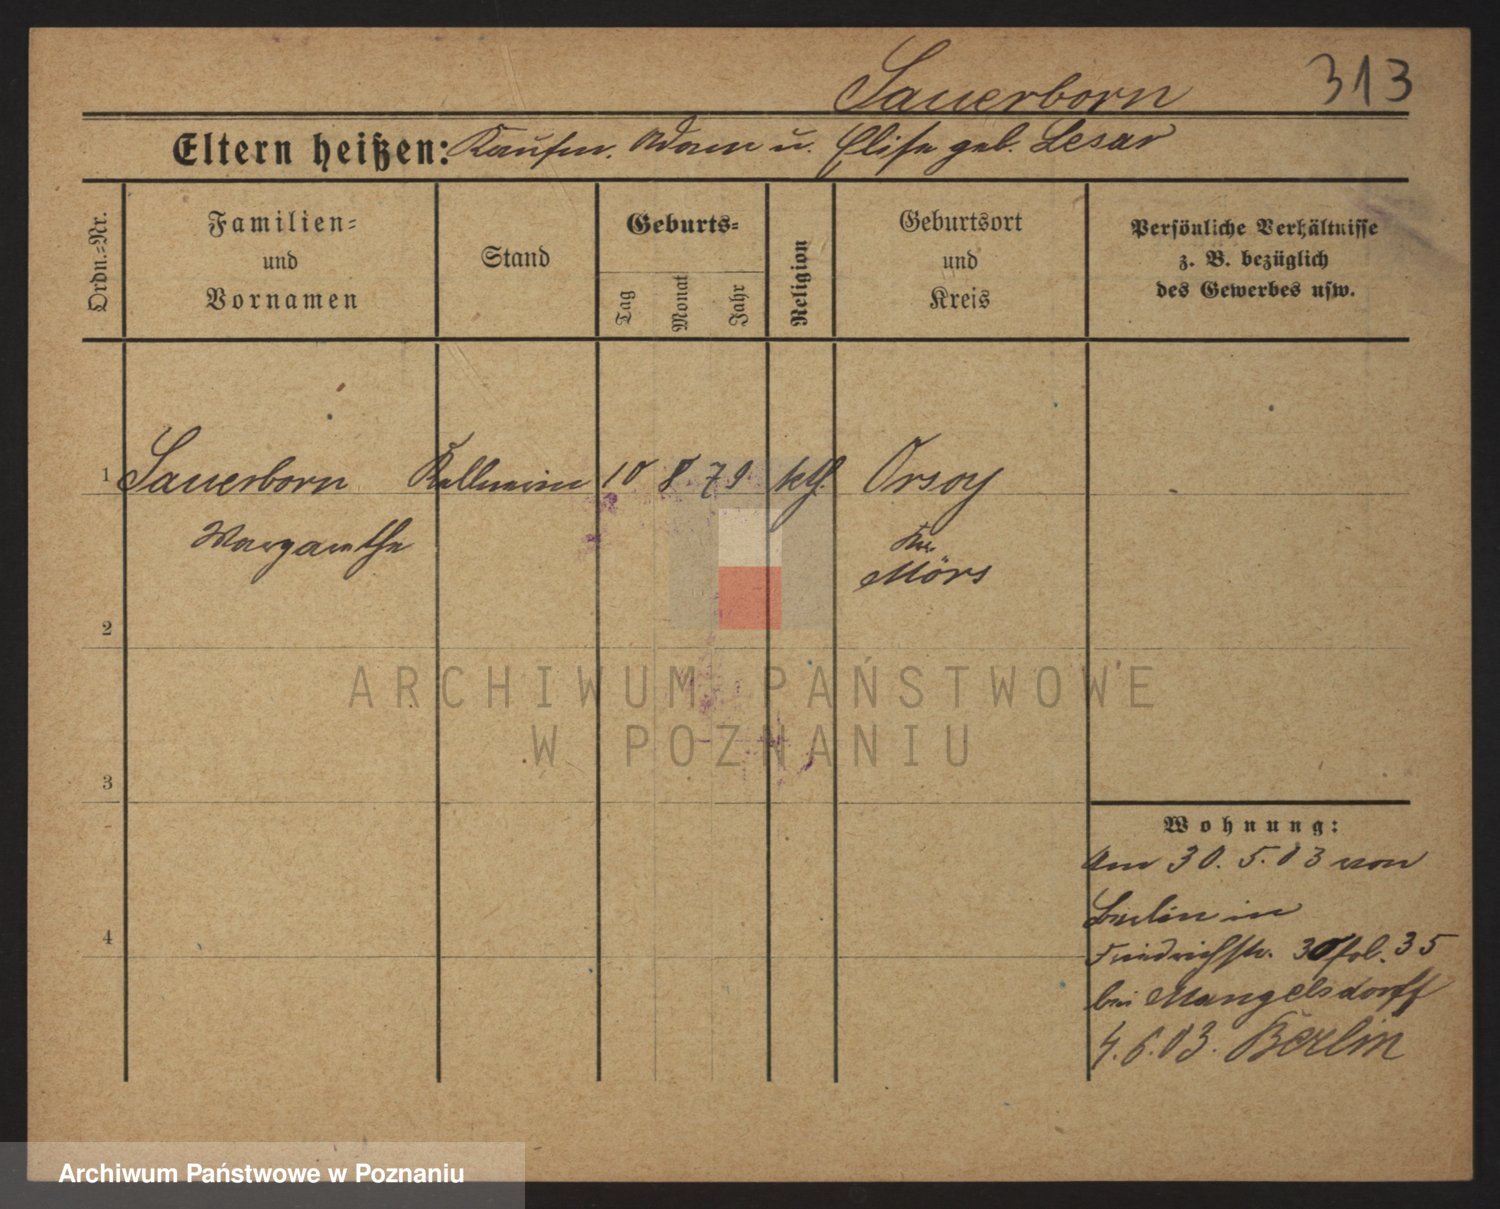 Sauerborn 313
Eltern heißen: Kaufm. Adam u. Elise geb. Lesar
Ordn.=Nr.
Familien=
und
Vornamen
Stand
Geburts=
Tag
Monat
Jahr
Religion
Geburtsort
und
Kreis
Persönliche Verhältnisse
z. B. bezüglich
des Gewerbes usw.
1 Sauerborn Kellnerin 10 8 79 kth. Orsoy
Margarethe Kr.
Mörs
2
3
4
ARCHIWUM PAŃSTWOWE
W POZNANIU
Wohnung:
Am 30. 5. 03 von
Berlin in
Friedrichstr. 30 fol. 35
bei Mangelsdorff
4. 6. 03. Berlin
Archiwum Państwowe w Poznaniu